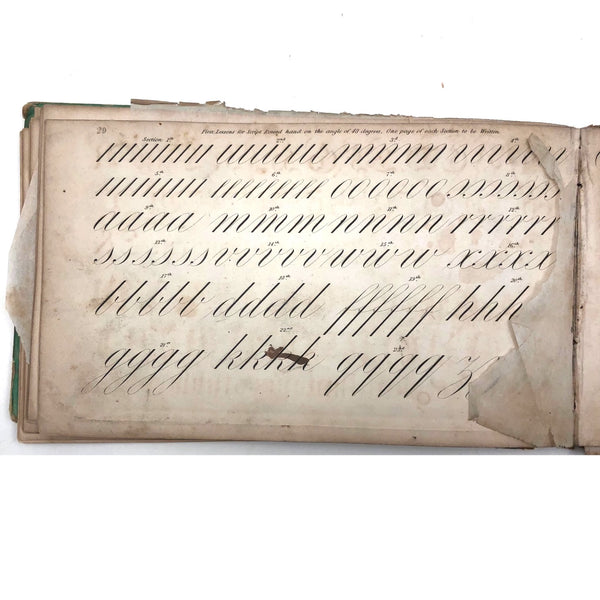 29 First Lessons for Script Round hand on the angle of 40 degrees, One page of each Section to be Written.
Section 1st 2nd 3d 4th
5th 6th 7th 8th
ooooooo sssssss
9th 10th 11th 12th
aaaa mmm nnnn rrrrr
13th 14th 15th 16th
ssssss vvvvv www xxxx
17th 18th 19th 20th
bbbbb dddd ffffff hhh
21st 22nd 23d
gggg kkkk qqqq z